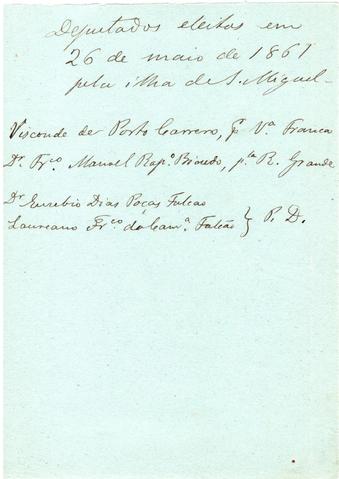 Deputados eleitos em
26 de maio de 1861
pela ilha de S. Miguel
Visconde de Porto Carrero, p. Vª Franca
Dr. Frco. Manoel Rapº Bicudo, pla R. Grande
Dr Euzebio Dias Poças Falcao
Laureano Frco. da Camª. Falcão } P. D.